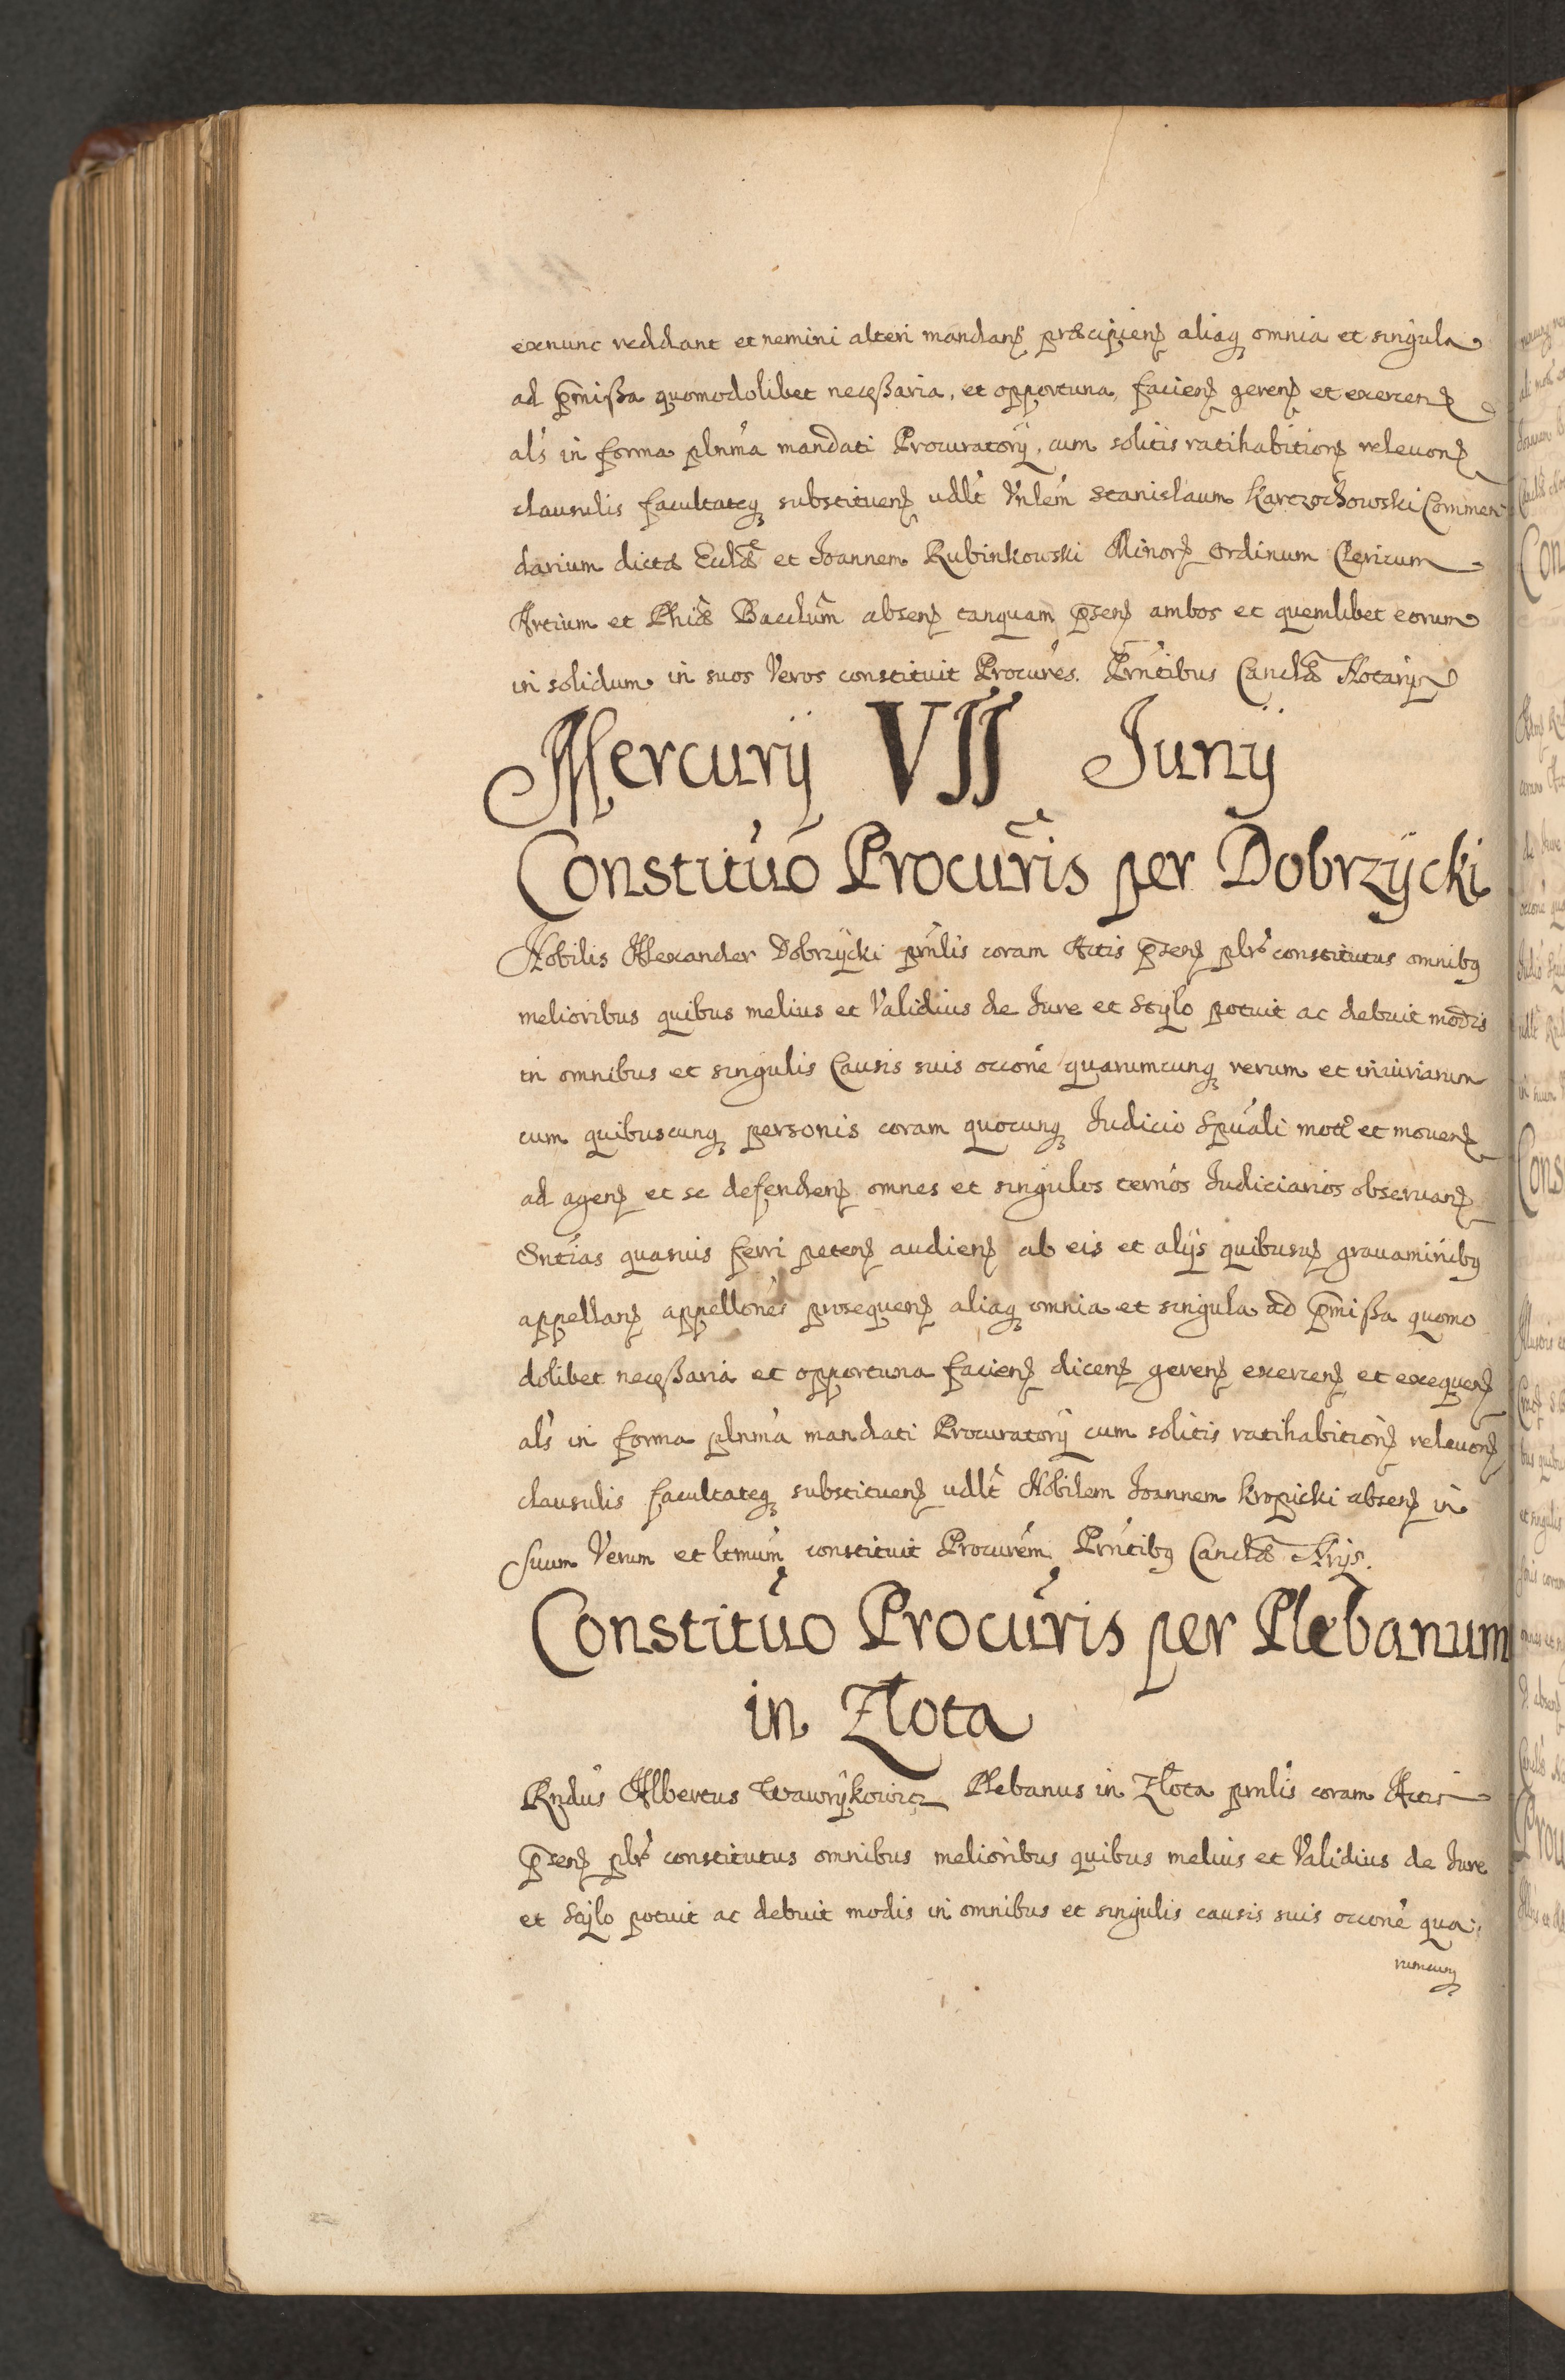 exnunc reddant et nemini alteri mandanꝫ præcipienꝫ aliaqꝫ omnia et singula
ad p̄missa quomodolibet necessaria, et opportuna, facienꝫ gerenꝫ et exercenꝫ
als in forma plnma mandati Procuratorij, cum solitis ratihabitionꝫ releuonꝫ
clausulis facultateqꝫ substituenꝫ udlt Vnlem Stanislaum Karczochowski Commen-
darium dictæ Ecclæ et Joannem Rubinkowski Minorꝫ Ordinum Clericum
Artium et Phiæ Baccłum absenꝫ tanquam p̄senꝫ ambos et quemlibet eorum
in solidum in suos Veros constituit Procures. Prntibus Canclæ Notarijs
Mercurij VII Junij
Constituo Procuris per Dobrzÿcki
Nobilis Alexander Dobrzÿcki prnlis coram Actis p̄senꝫ plr constitutus omnibꝫ
melioribus quibus melius et Validius de Jure et Stylo potuit ac debuit modis
in omnibus et singulis Causis suis occone quarumcunqꝫ rerum et iniuriarum
cum quibuscunqꝫ personis coram quocunqꝫ Judicio Spuali mots et mouenꝫ
ad agenꝫ et se defendenꝫ omnes et singulos ternos Judiciarios obseruanꝫ
Sntias quasuis ferri petenꝫ audienꝫ ab eis et alijs quibusuꝫ grauaminibꝫ
appellanꝫ appellones prosequenꝫ aliaqꝫ omnia et singula ad p̄missa quomo
dolibet necessaria et opportuna facienꝫ dicenꝫ gerenꝫ exercenꝫ et exequenꝫ
als in forma plnma mandati Procuratorij cum solitis ratihabitionꝫ releuonꝫ
clausulis facultateqꝫ substituenꝫ udlt Nobilem Joannem Kropicki absenꝫ in
suum Verum et ltmum constituit Procurem Prntibꝫ Canclæ Nrijs.
Constituo Procuris per Plebanum
in Złota
Rndus Albertus Wawrÿkowicz Plebanus in Złota prnlis coram Actis
p̄senꝫ plr constitutus omnibus melioribus quibus melius et Validius de Jure
et Stylo potuit ac debuit modis in omnibus et singulis causis suis occone qua-
rumcunqꝫ